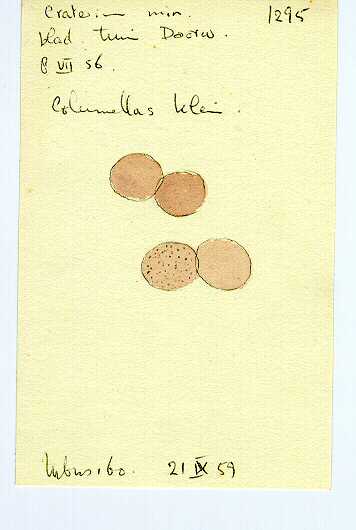 Craterium min. 1295
blad. tuin Doorw.
8 VII 56.
Columellas klein.
21 IX 59